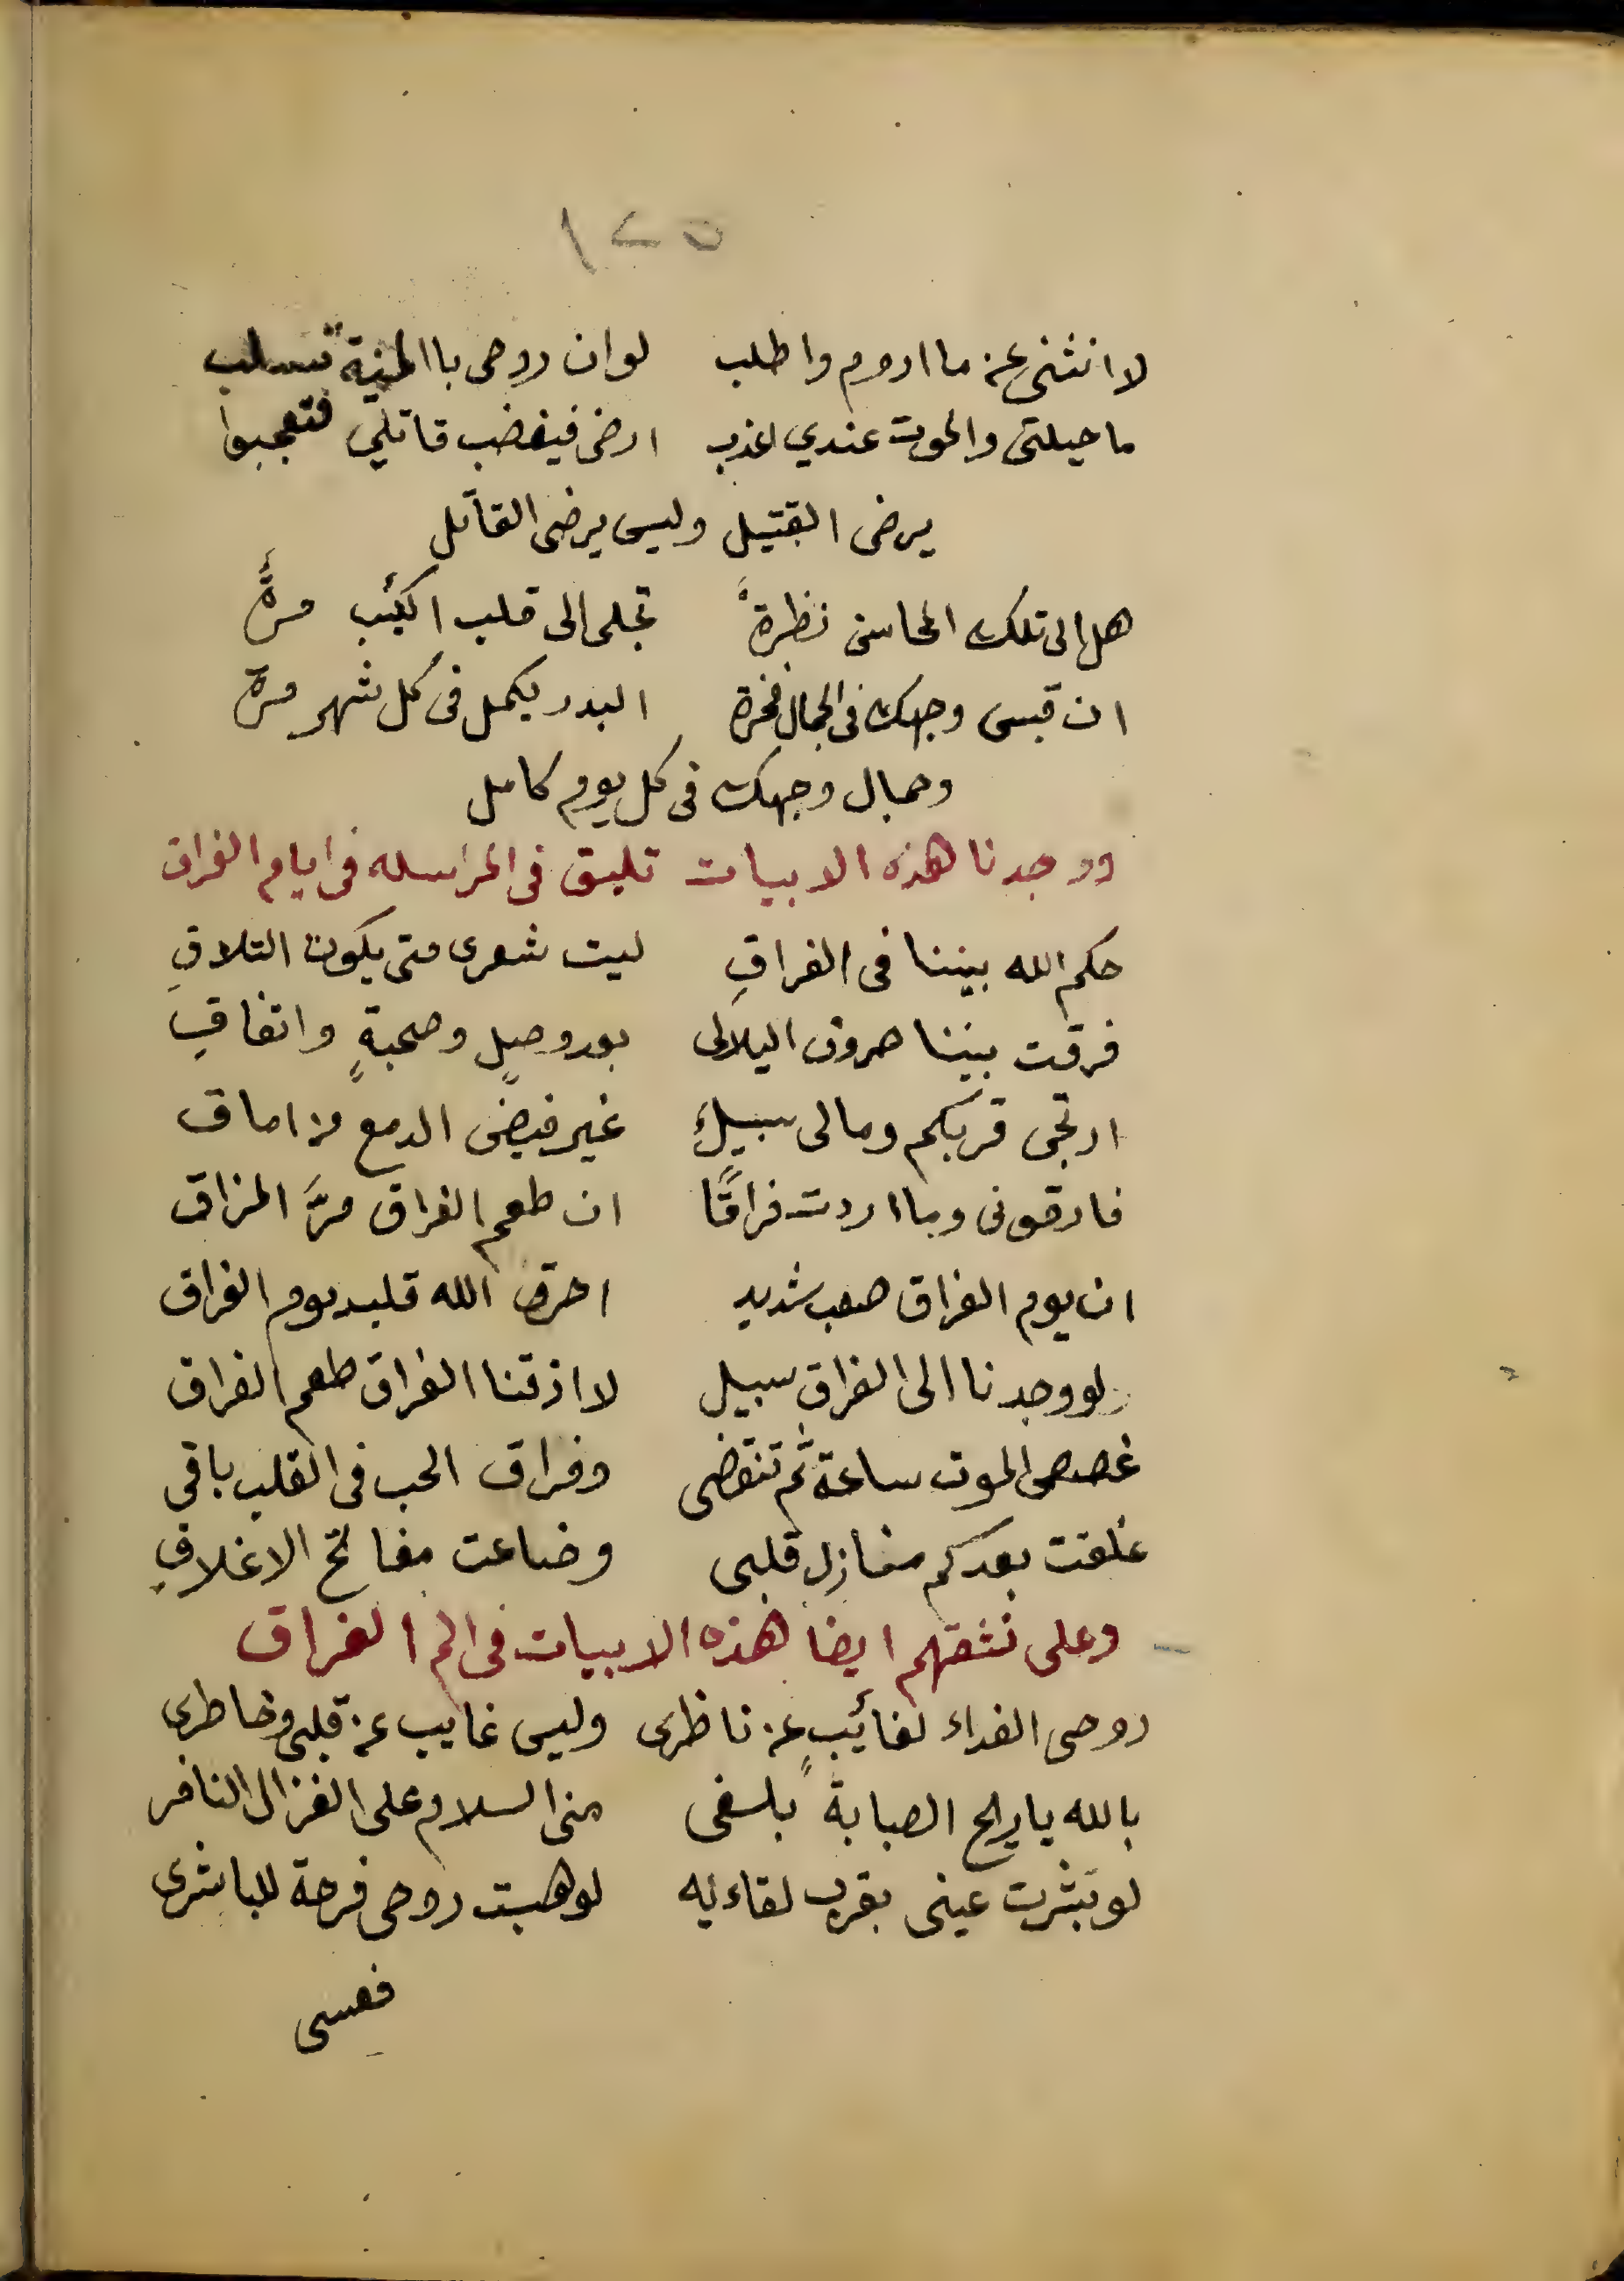 ١٢٥
لا انثنى عن ما اروم واطلب لو ان روحى باالمنية تسلب
ما حيلتى والموت عندي اعذب ارضى فيغضب قاتلي فتعجبوا
يرضى القتيل وليس يرضى القاتل
هل الى تلك المحاسن نظرةً تجلى الى قلب اكئب مرةً
ان قيس وجهك فى الجمال فخرة البدر يكمل فى كل شهر مرة
وجمال وجهك فى كل يوم كامل
ووجدنا هذه الابيات تليق فى المراسله فى ايام الفراق
حكم الله بيننا فى الفراقِ ليت شعرى متى يكون التلاقِ
فرقت بيننا صروف اليلالى بعد وصلٍ وصحبةٍ واتفاقِ
ارتجى قربكم ومالى سبيلٍ غير فيض الدمع من اماق
فارقونى وما اردت فراقًا ان طعم الفراق مرَّ المزاق
ان يوم الفراق صعب شديد احرق الله قلب يوم الفراق
لو وجدنا الى الفراق سبيل لا اذقنا الفراق طعم الفراق
غصص الموت ساعة ثم تنقضى وفراق الحب فى القلب باقى
غلقت بعدكم منازل قلبى وضاعت مفاتح الاغلاقِ
وعلى نثقهم ايضا هذه الابيات فى الم الفراق
روحى الفداء لغائبٍ عن ناظرى وليس غايب عن قلبى وخاطرى
بالله ياريح الصبابةً بلغى منى السلام على الغزال النافر
لو بشرت عينى بقرب لقاءيه لوهبت روحى فرحة للباشرى
فعسى